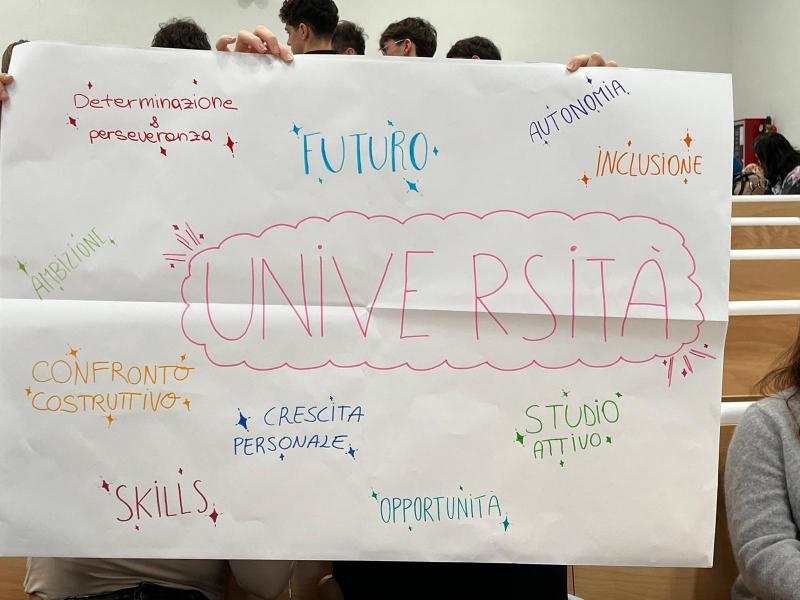 Determinazione
&
perseveranza
FUTURO
AUTONOMIA
INCLUSIONE
AMBIZIONE
UNIVERSITÀ
CONFRONTO
COSTRUTTIVO
CRESCITA
PERSONALE
STUDIO
ATTIVO
SKILLS
OPPORTUNITÀ